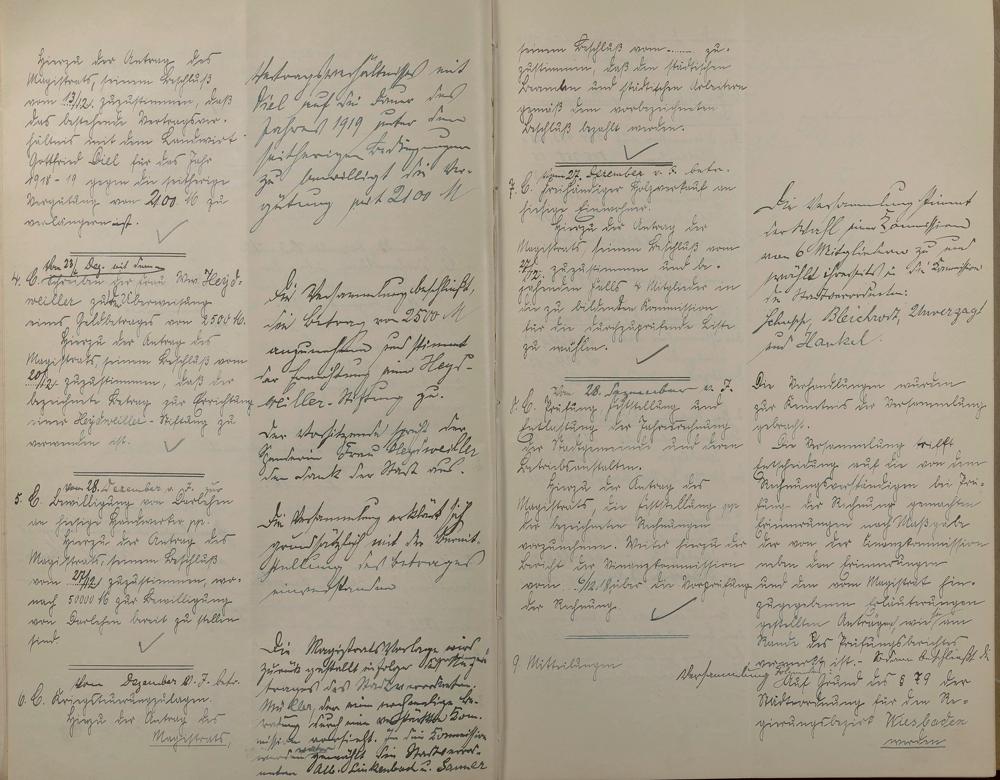 Hierzu der Antrag des
Magistrats, seinem Beschluß
vom 13/12. zuzustimmen, daß
das bestehende Vertragsver-
hältnis mit dem Landwirt
Gottfried Diel für das Jahr
1918-19 gegen die seitherige
Vergütung von 2100 M zu
verlängern ist.
Vom 23/ Dez.
4. C. Schreiben der Frau Ww. Heyd-
weiller zur Überweisung
eines Geldbetrages von 2500 M.
Hierzu der Antrag des
Magistrats, seinem Beschluß vom
20/12. zuzustimmen, daß der
bezeichnete Betrag zur Errichtung
einer Heydweiller-Stiftung zu
verwenden ist.
vom 28. Dezember v. J. zur
5. C. Bewilligung von Darlehen
an hiesige Handwerker pp.
Hierzu der Antrag des
Magistrats, seinem Beschluß
vom 27/12. zuzustimmen, wo-
nach 50000 M zur Bewilligung
von Darlehen bereit zu stellen
sind
Vom Dezember v. J. betr.
6. C. Kriegsteuerungszulagen.
Hierzu der Antrag des
Magistrats,
Vertragsverhältnisses mit
Diel auf die Dauer des
Jahres 1919 unter den
seitherigen Bedingungen
zu bewilligt die Ver-
gütung mit 2100 M
Die Versammlung beschließt,
den Betrag von 2500 M
anzunehmen und stimmt
der Errichtung einer Heyd-
weiller-Stiftung zu.
Der Vorsitzende spricht der
Spenderin Frau Heydweiller
den Dank der Stadt aus.
Die Versammlung erklärt sich
grundsätzlich mit der Bereit-
stellung des Betrages
einverstanden
Die Magistratsvorlage wird
zurück gestellt in folge des
trages des Stadtverordneten
der eine nochmalige Be-
ratung durch eine verstärkte Kom-
mission vorsieht. In die Kommission
werden weiter gewählt die Stadtverord-
neten Alb. Linkenbach u. Sommer
seinem Beschluß vom ...... zu-
zustimmen, daß den städtischen
Beamten und städtischen Arbeitern
gemäß dem vorbezeichneten
Beschluß bezahlt werden.
vom 27. Dezember v. J. betr.
7. C. freihändiger Holzverkauf an
hiesige Einwohner.
Hierzu der Antrag des
Magistrats, seinem Beschluß vom
27/12. zuzustimmen und be-
jahenden Falls 4 Mitglieder in
die zu bildende Kommission
für die durchzuprüfende Liste
zu wählen.
Vom 28. Dezember v. J.
8. C. Prüfung, Feststellung und
Entlastung der Jahresrechnung
der Stadtgemeinde und deren
Betriebsanstalten.
Hierzu der Antrag des
Magistrats, die Feststellung pp
der bezeichneten Rechnungen
vorzunehmen. Weiter hierzu der
Bericht der Finanzkommission
vom 6/12. über die Vorprüfung
der Rechnung.
9. Mitteilungen
Die Versammlung stimmt
der Wahl einer Kommission
von 6 Mitgliedern zu und
gewählt in die Kommission
die Stadtverordneten:
Bleichrot, Unverzagt
und Hankel.
Die Verhandlungen wurden
zur Kenntnis der Versammlung
gebracht.
Die Versammlung trifft
Entscheidung auf die von dem
Rechnungsverständigen bei Prü-
fung der Rechnung gemachten
Erinnerungen nach Maßgabe
der von der Finanzkommission
neben den Erinnerungen
und den vom Magistrat hin-
zugegebenen Erläuterungen
gestellten Anträgen, wie am
Rande des Prüfungsberichtes
vermerkt ist. Sodann beschließt die
Versammlung
Auf Grund des § 79 der
Städteordnung für den Re-
gierungsbezirk Wiesbaden
werden